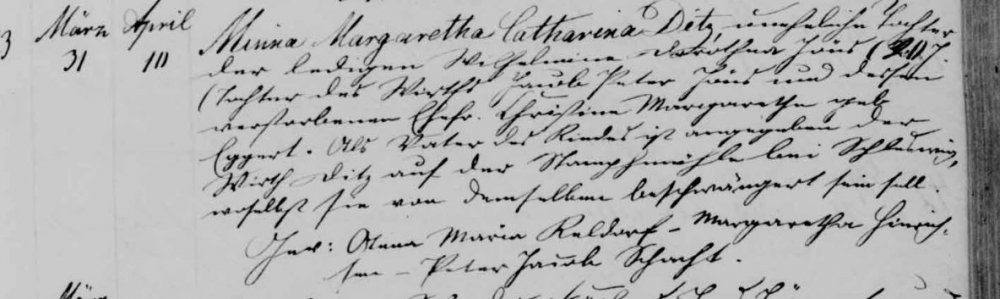 3 März April
31 10
Minna Margaretha Catharina Ditz, uneheliche Tochter
der ledigen Wilhelmine Dorothea Jöns
(Tochter des Wirths Jacob Peter Jöns und dessen
verstorbenen Ehefr. Christine Margarethe geb.
Eggert. Als Vater des Kindes ist angegeben der
Wirth Ditz auf der Stampfmühle bei Schleswig,
woselbst sie von demselben beschwängert sein soll.
Gev: Anna Maria Reldorf – Margaretha Hinrich-
sen – Peter Jacob Schacht.
März